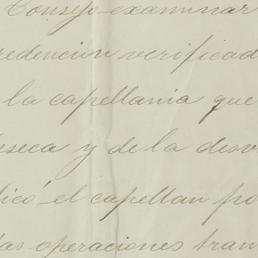 Consejo examinar
redencion verificad
la capellania que
nseca y de la desv
licó el capellan po
las operaciones tram